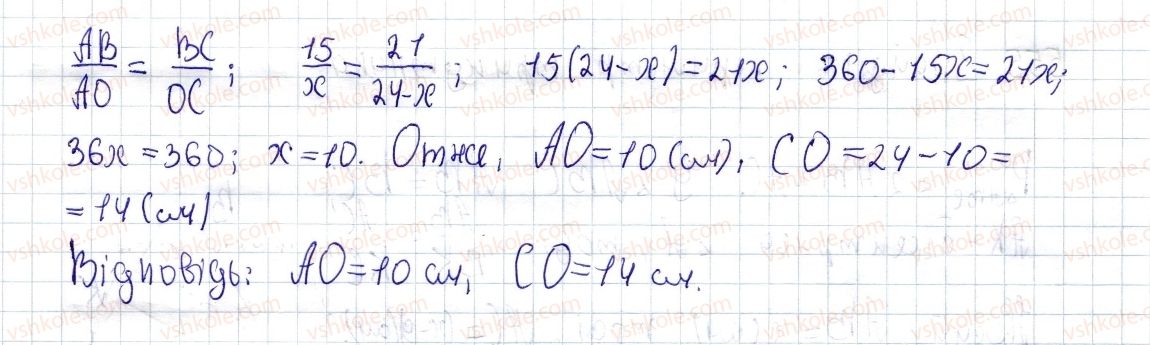 AB/AO = BC/OC; 15/x = 21/24-x; 15(24-x)=21x; 360-15x=21x;
36x=360; x=10. Отже, AO=10(см), CO=24-10=
=14(см)
Відповідь: AO=10 см, CO=14 см.